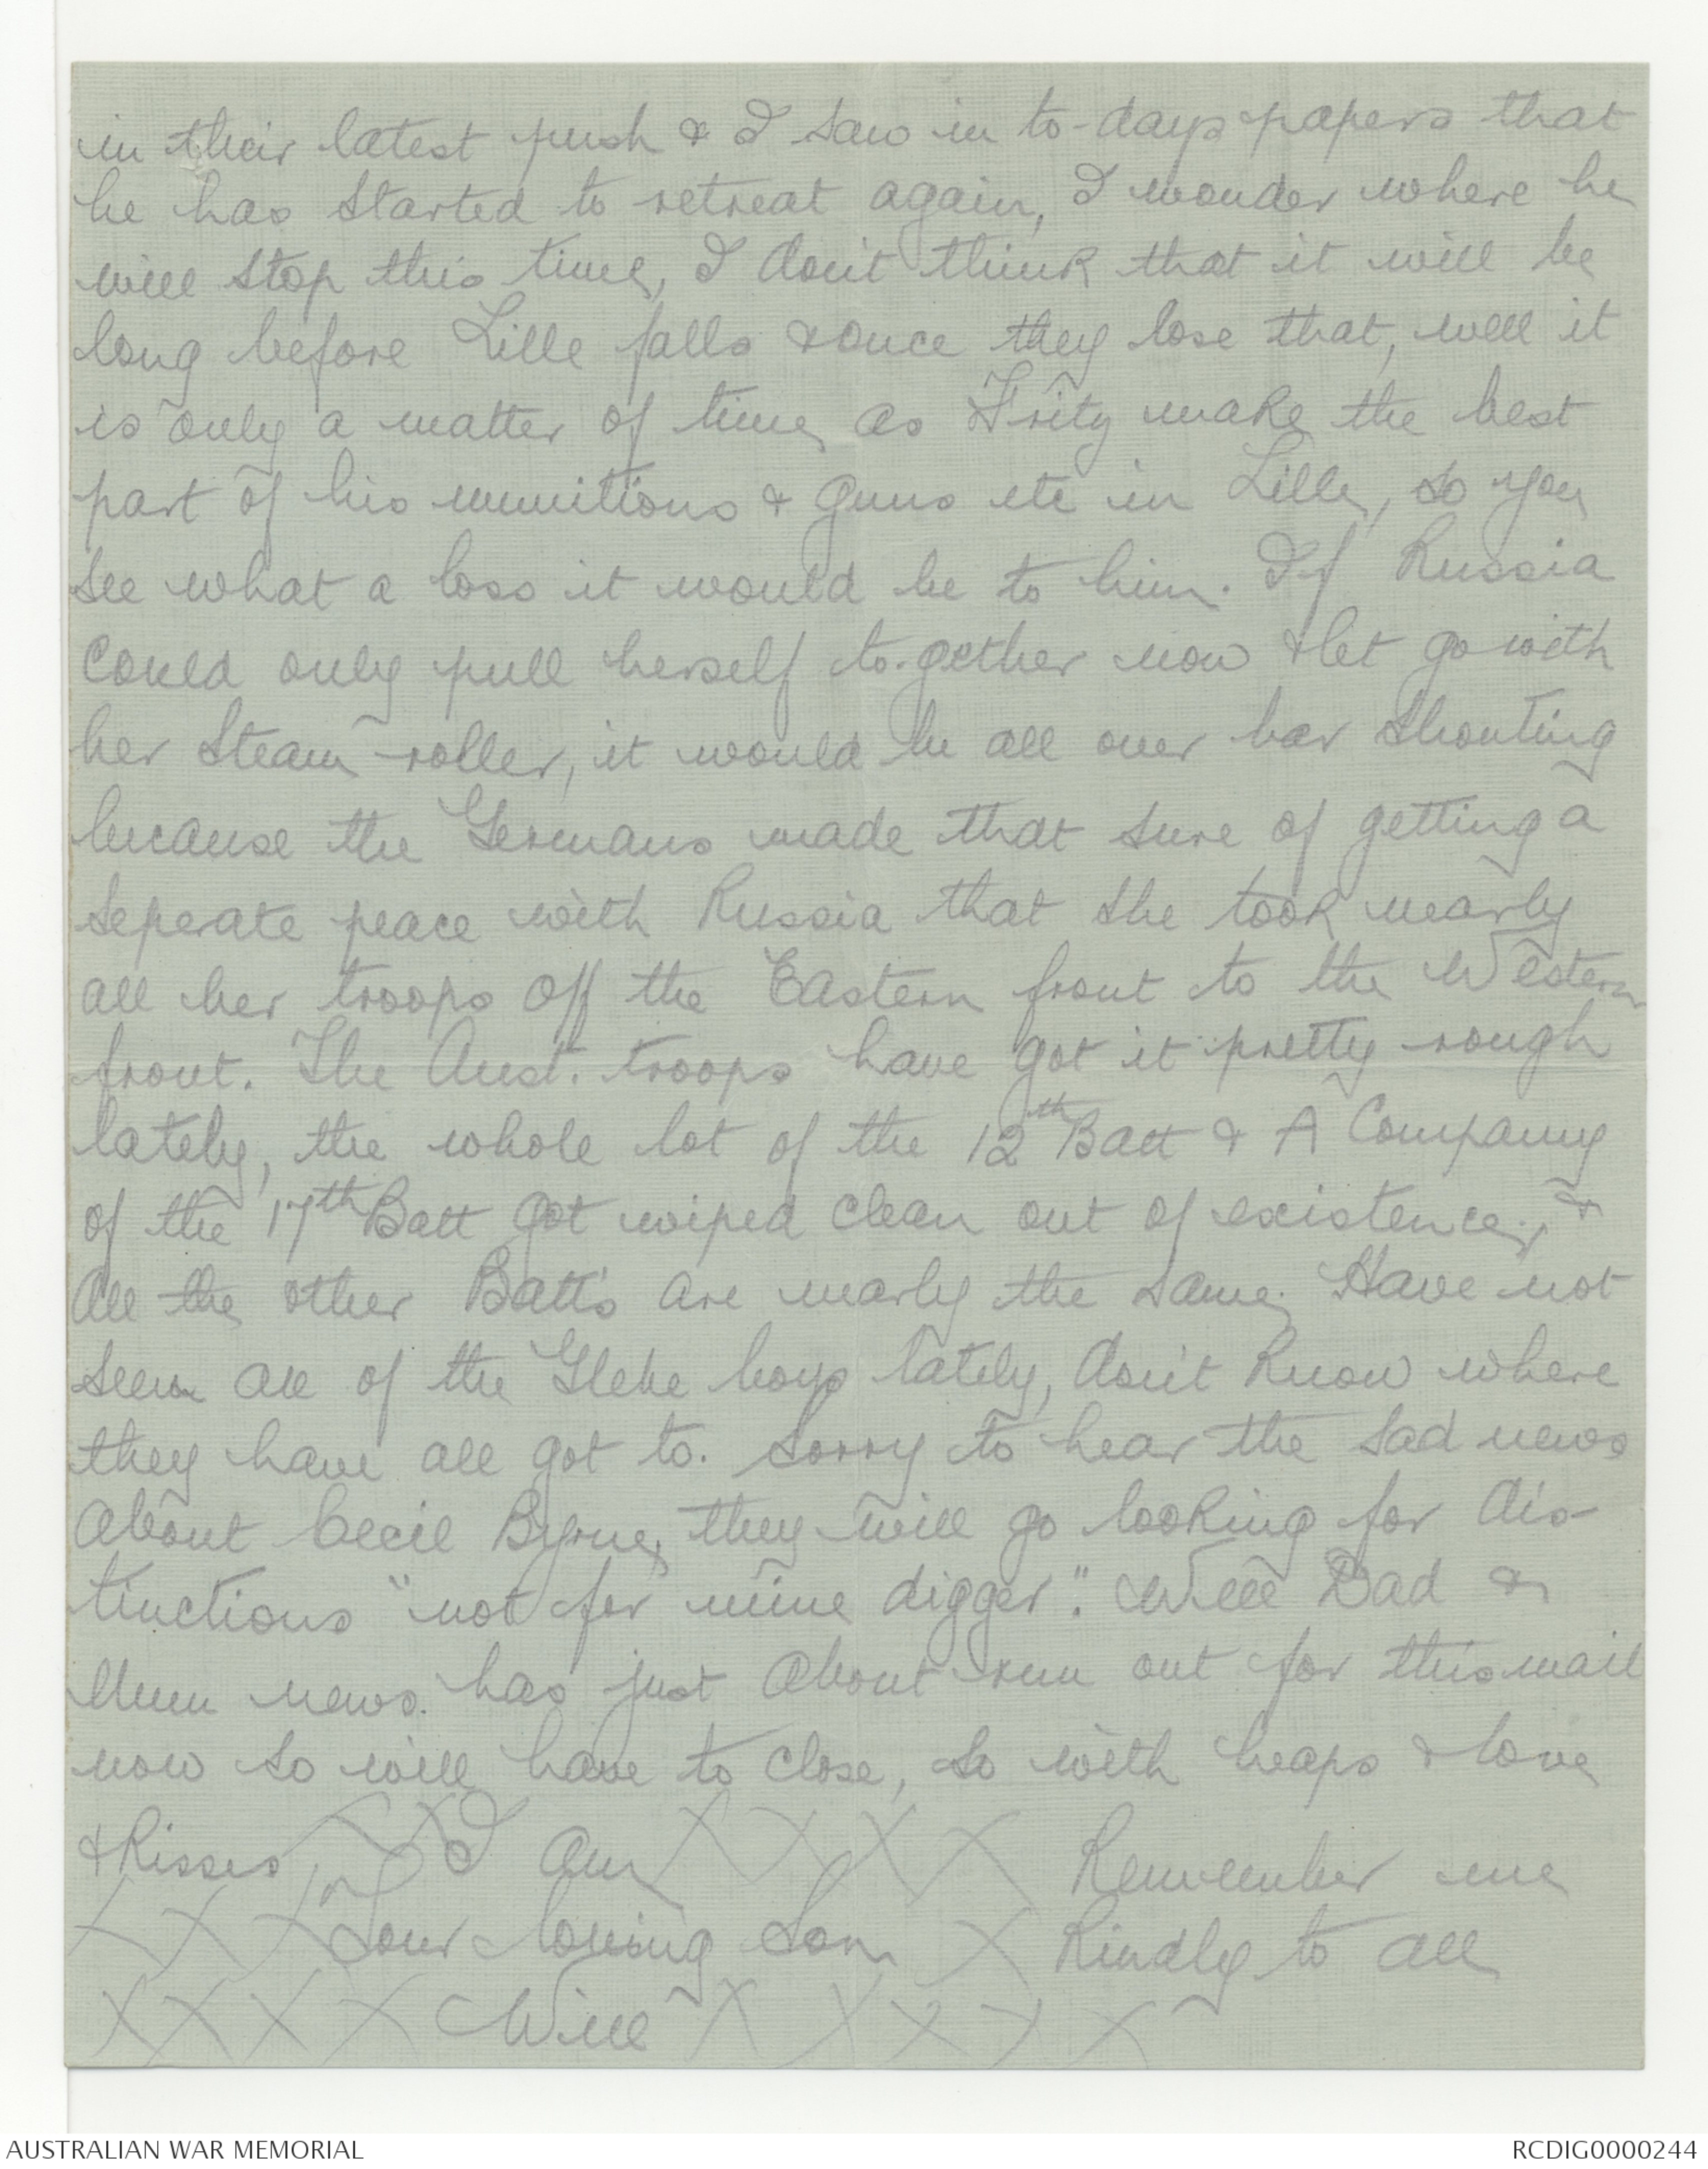 in their latest push & I saw in to-days papers that
he has started to retreat again, I wonder where he
will stop this time, I don't think that it will be
long before Lille falls & once they lose that, well it
is only a matter of time as Fritz make the best
part of his munitions & guns etc in Lille, so you
see what a loss it would be to him. If Russia
could only pull herself to-gether now & let go with
her steam-roller, it would be all over bar shouting
because the Germans made that sure of getting a
seperate peace with Russia that she took nearly
all her troops off the Eastern front to the Western
front. The Aust. troops have got it pretty rough
lately, the whole lot of the 12th Batt & A Company
of the 17th Batt got wiped clean out of existence, &
all the other Batt's are nearly the same. Have not
seen all of the Glebe boys lately, don't know where
they have all got to. Sorry to hear the sad news
about Cecil Byrne, they will go looking for dis-
tinctions "not for mine digger". Well Dad &
Mum news. has just about run out for this mail
now so will have to close, so with heaps & love
& Kisses X X I am X X X X Remember me
X X X Your loving Son X Kindly to all
X X X X Will X X X X X
AUSTRALIAN WAR MEMORIAL
RCDIG0000244